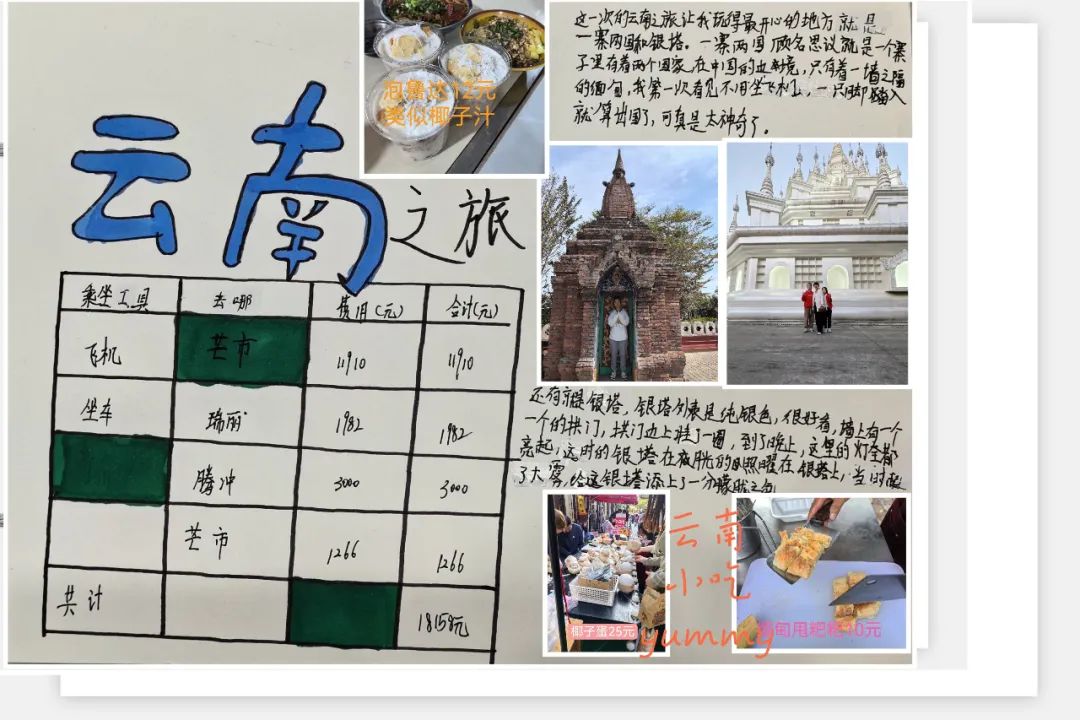 云南之旅
乘坐工具 去哪 费用(元) 合计(元)
飞机 芒市 11910 11910
坐车 瑞丽 1982 1982
腾冲 3000 3000
芒市 1266 1266
共计 18158元
泡鲁达12元
类似椰子汁
这一次的云南之旅让我玩得最开心的地方就是
一寨两国和银塔。一寨两国顾名思议就是一个寨
子里有着两个国家,在中国的边境,只有着一墙之隔
的缅甸,我第一次看见不用坐飞机,一只脚踏入
就算出国了,可真是太神奇了。
还有就是银塔,银塔外表是纯银色,很好看,墙上有一个
一个的拱门,拱门边上挂了一圈,到了晚上,这里的灯全都
亮起,这时的银塔在夜晚的照耀在银塔上,当时
了大雾,给这银塔添上了一分朦胧之
云南
小吃
yummy
椰子蛋25元
缅甸甩粑粑10元